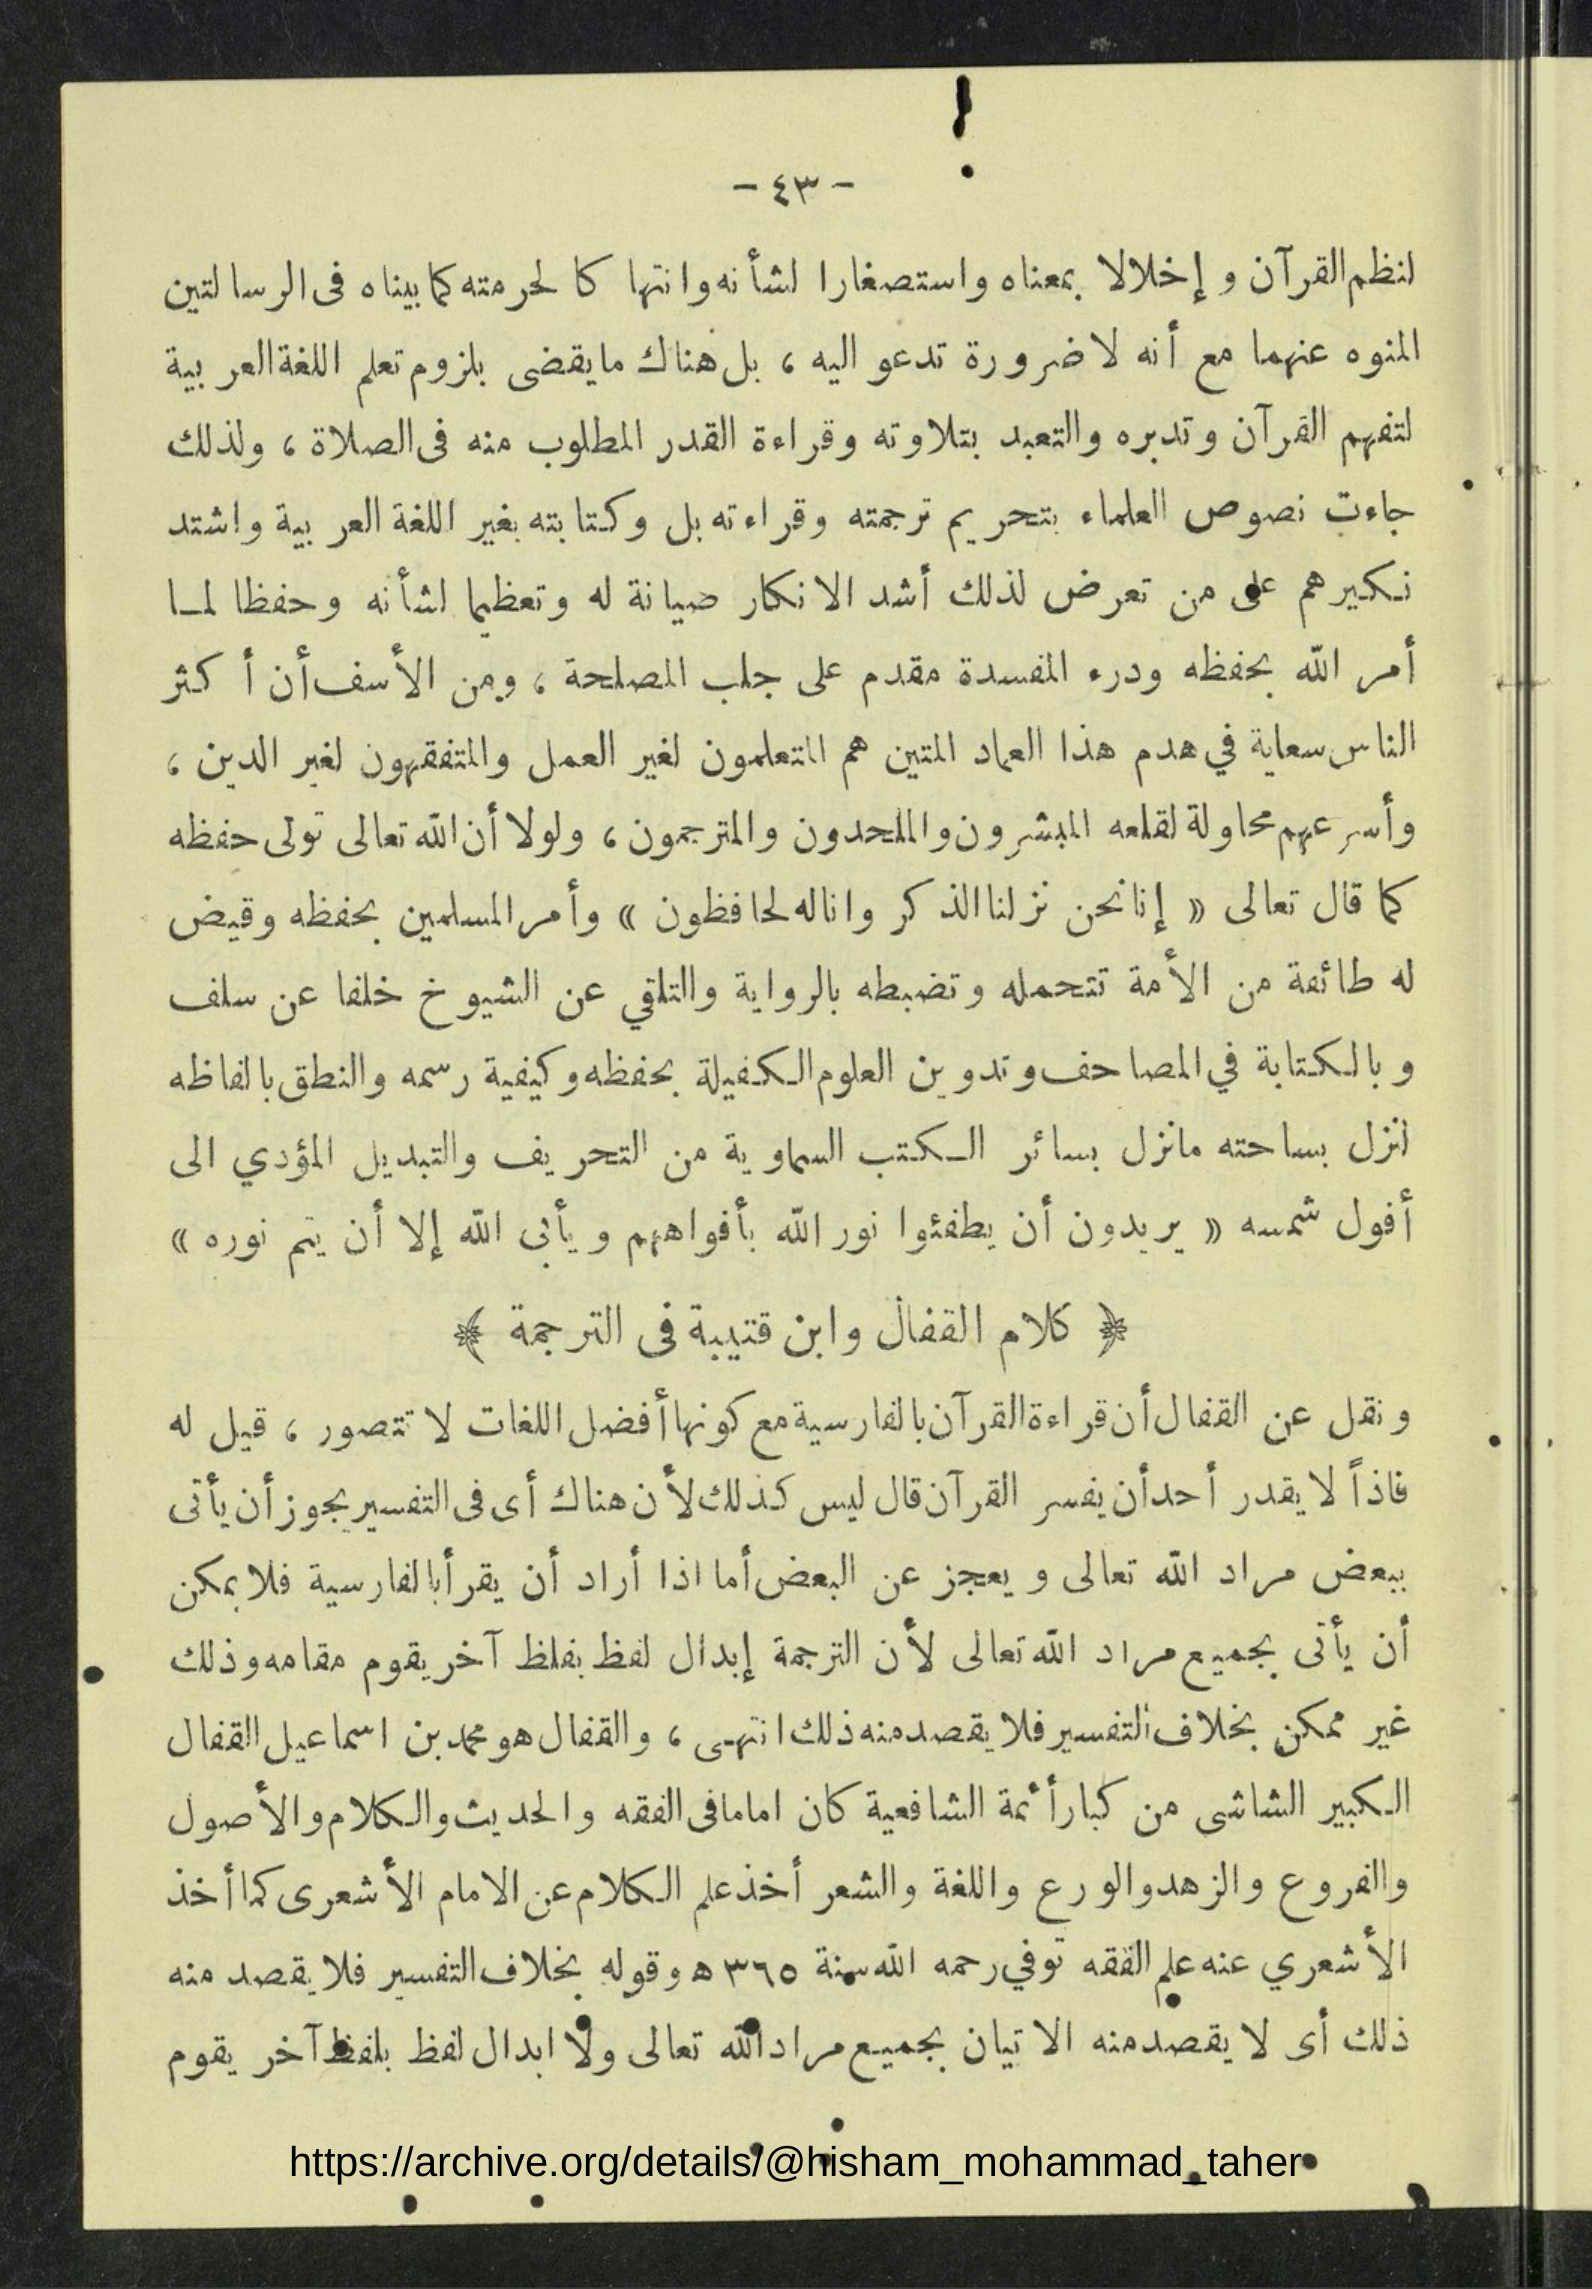 - ٤٣ -
لنظم القرآن و إخلالا بمعناه واستصغارا لشأنه وانتهاكا لحرمته كما بيناه فى الرسالتين
المنوه عنهما مع أنه لا ضرورة تدعو اليه ، بل هناك مايقضى بلزوم تعلم اللغة العربية
لتفهم القرآن وتدبره والتعبد بتلاوته وقراءة القدر المطلوب منه فى الصلاة ، ولذلك
جاءت نصوص العلماء بتحريم ترجمته وقراءته بل وكتابته بغير اللغة العربية واشتد
نكيرهم على من تعرض لذلك أشد الانكار صيانة له وتعظيما لشأنه وحفظا لما
أمر الله بحفظه ودرء المفسدة مقدم على جلب المصلحة ، ومن الأسف أن أكثر
الناس سعاية في هدم هذا العماد المتين هم المتعلمون لغير العمل والمتفقهون لغير الدين ،
وأسرعهم محاولة لقلعه المبشرون والملحدون والمترجمون ، ولولا أن الله تعالى تولى حفظه
كما قال تعالى « إنا نحن نزلنا الذكر وانا له لحافظون » وأمر المسلمين بحفظه وقيض
له طائفة من الأمة تتحمله وتضبطه بالرواية والتلقي عن الشيوخ خلفا عن سلف
وبالكتابة في المصاحف وتدوين العلوم الكفيلة بحفظه وكيفية رسمه والنطق بالفاظه
لنزل بساحته مانزل بسائر الكتب السماوية من التحريف والتبديل المؤدي الى
أفول شمسه « يريدون أن يطفئوا نور الله بأفواههم و يأبى الله إلا أن يتم نوره »
﴿ كلام القفال وابن قتيبة فى الترجمة ﴾
ونقل عن القفال أن قراءة القرآن بالفارسية مع كونها أفضل اللغات لا تتصور ، قيل له
فاذاً لا يقدر أحد أن يفسر القرآن قال ليس كذلك لأن هناك أى فى التفسير يجوز أن يأتى
ببعض مراد الله تعالى ويعجز عن البعض أما اذا أراد أن يقرأ بالفارسية فلا يمكن
أن يأتى بجميع مراد الله تعالى لأن الترجمة إبدال لفظ بفلظ آخر يقوم مقامه وذلك
غير ممكن بخلاف التفسير فلا يقصد منه ذلك انتهى ، والقفال هو محمد بن اسماعيل القفال
الكبير الشاشى من كبار أئمة الشافعية كان اماما فى الفقه والحديث والكلام والأصول
والفروع والزهد والورع واللغة والشعر أخذ علم الكلام عن الامام الأشعرى كما أخذ
الأشعري عنه علم الفقه توفي رحمه الله سنة ٣٦٥ ه وقوله بخلاف التفسير فلا يقصد منه
ذلك أى لا يقصد منه الاتيان بجميع مراد الله تعالى ولا ابدال لفظ بلفظ آخر يقوم
https://archive.org/details/@hisham_mohammad_taher